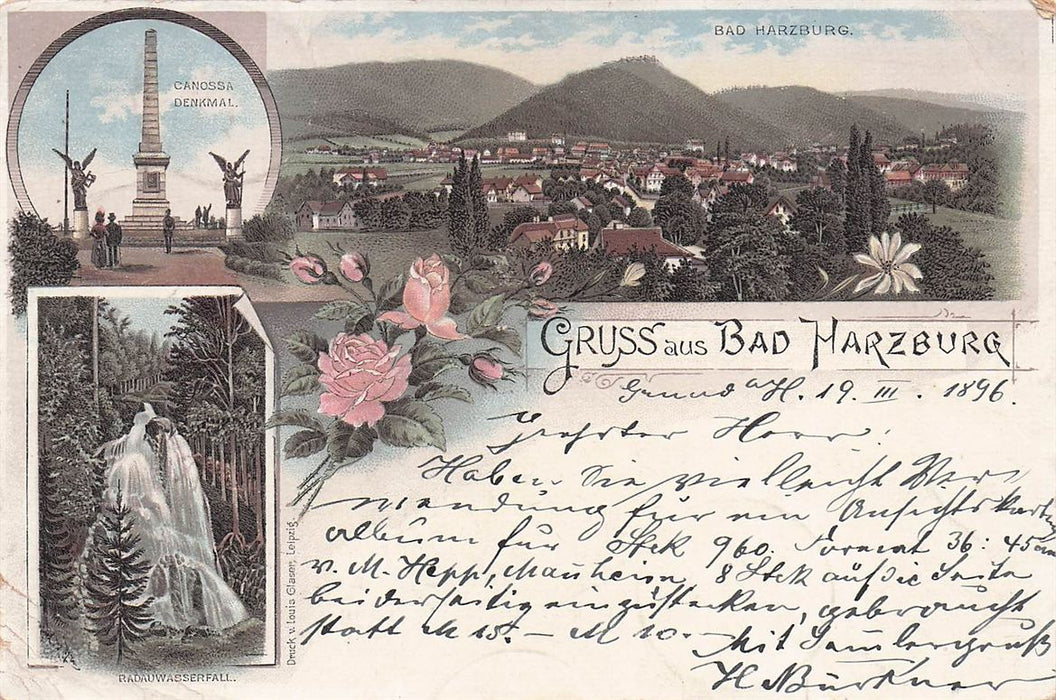 CANOSSA
DENKMAL.
BAD HARZBURG.
GRUSS aus BAD HARZBURG
Grund a/H. 19. III. 1896.
Geehrter Herr!
Haben Sie vielleicht Ver-
wendung für ein Ansichtskarten
album für Stck 960. Format 36:45 cm
v. M. Hepp, Manheim, 8 Stck auf die Seite
beiderseitig einzustecken, gebraucht
statt M 15.- M 10.- Mit Samlergruß
H. Bürkner
Druck v. Louis Glaser, Leipzig.
RADAUWASSERFALL.